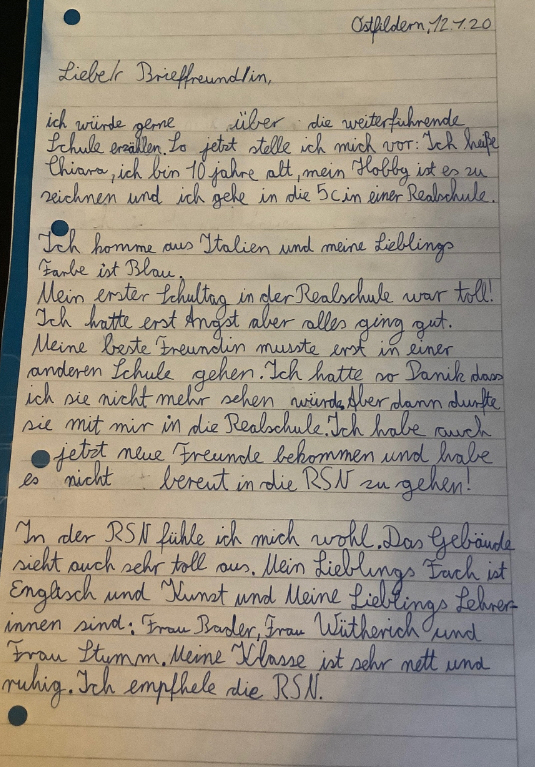 Ostfildern, 12.1.20
Liebe/r Brieffreund/in,
ich würde gerne über die weiterführende
Schule erzählen. So jetzt stelle ich mich vor: Ich heiße
Chiara, ich bin 10 jahre alt, mein Hobby ist es zu
zeichnen und ich gehe in die 5c in einer Realschule.
Ich komme aus Italien und meine Lieblings
Farbe ist Blau.
Mein erster Schultag in der Realschule war toll!
Ich hatte erst Angst aber alles ging gut.
Meine beste Freundin musste erst in einer
anderen Schule gehen. Ich hatte so Danik dass
ich sie nicht mehr sehen würde. Aber dann durfte
sie mit mir in die Realschule. Ich habe auch
jetzt neue Freunde bekommen und habe
es nicht bereut in die RSN zu gehen!
In der RSN fühle ich mich wohl. Das Gebäude
sieht auch sehr toll aus. Mein Lieblings Fach ist
Englisch und Kunst und Meine Lieblings Lehrer-
innen sind: Frau Bader, Frau Wütherich und
Frau Stumm. Meine Klasse ist sehr nett und
ruhig. Ich empfhele die RSN.